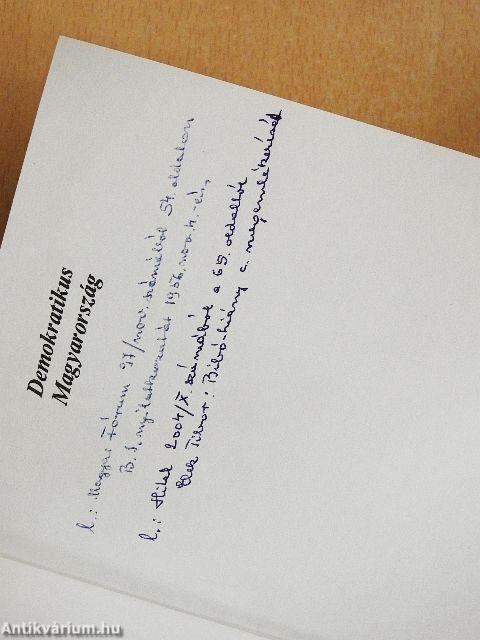 Demokratikus
Magyarország
l.: Magyar Fórum 97/nov. számából 54. oldalon
B. I. nyilatkozatát 1956. nov. 4.-én,
l.: Hitel 2004/X. számából a 65. oldaltól
Elek Tibor: Bibó-hiány c. megemlékezését
Antikvárium.hu